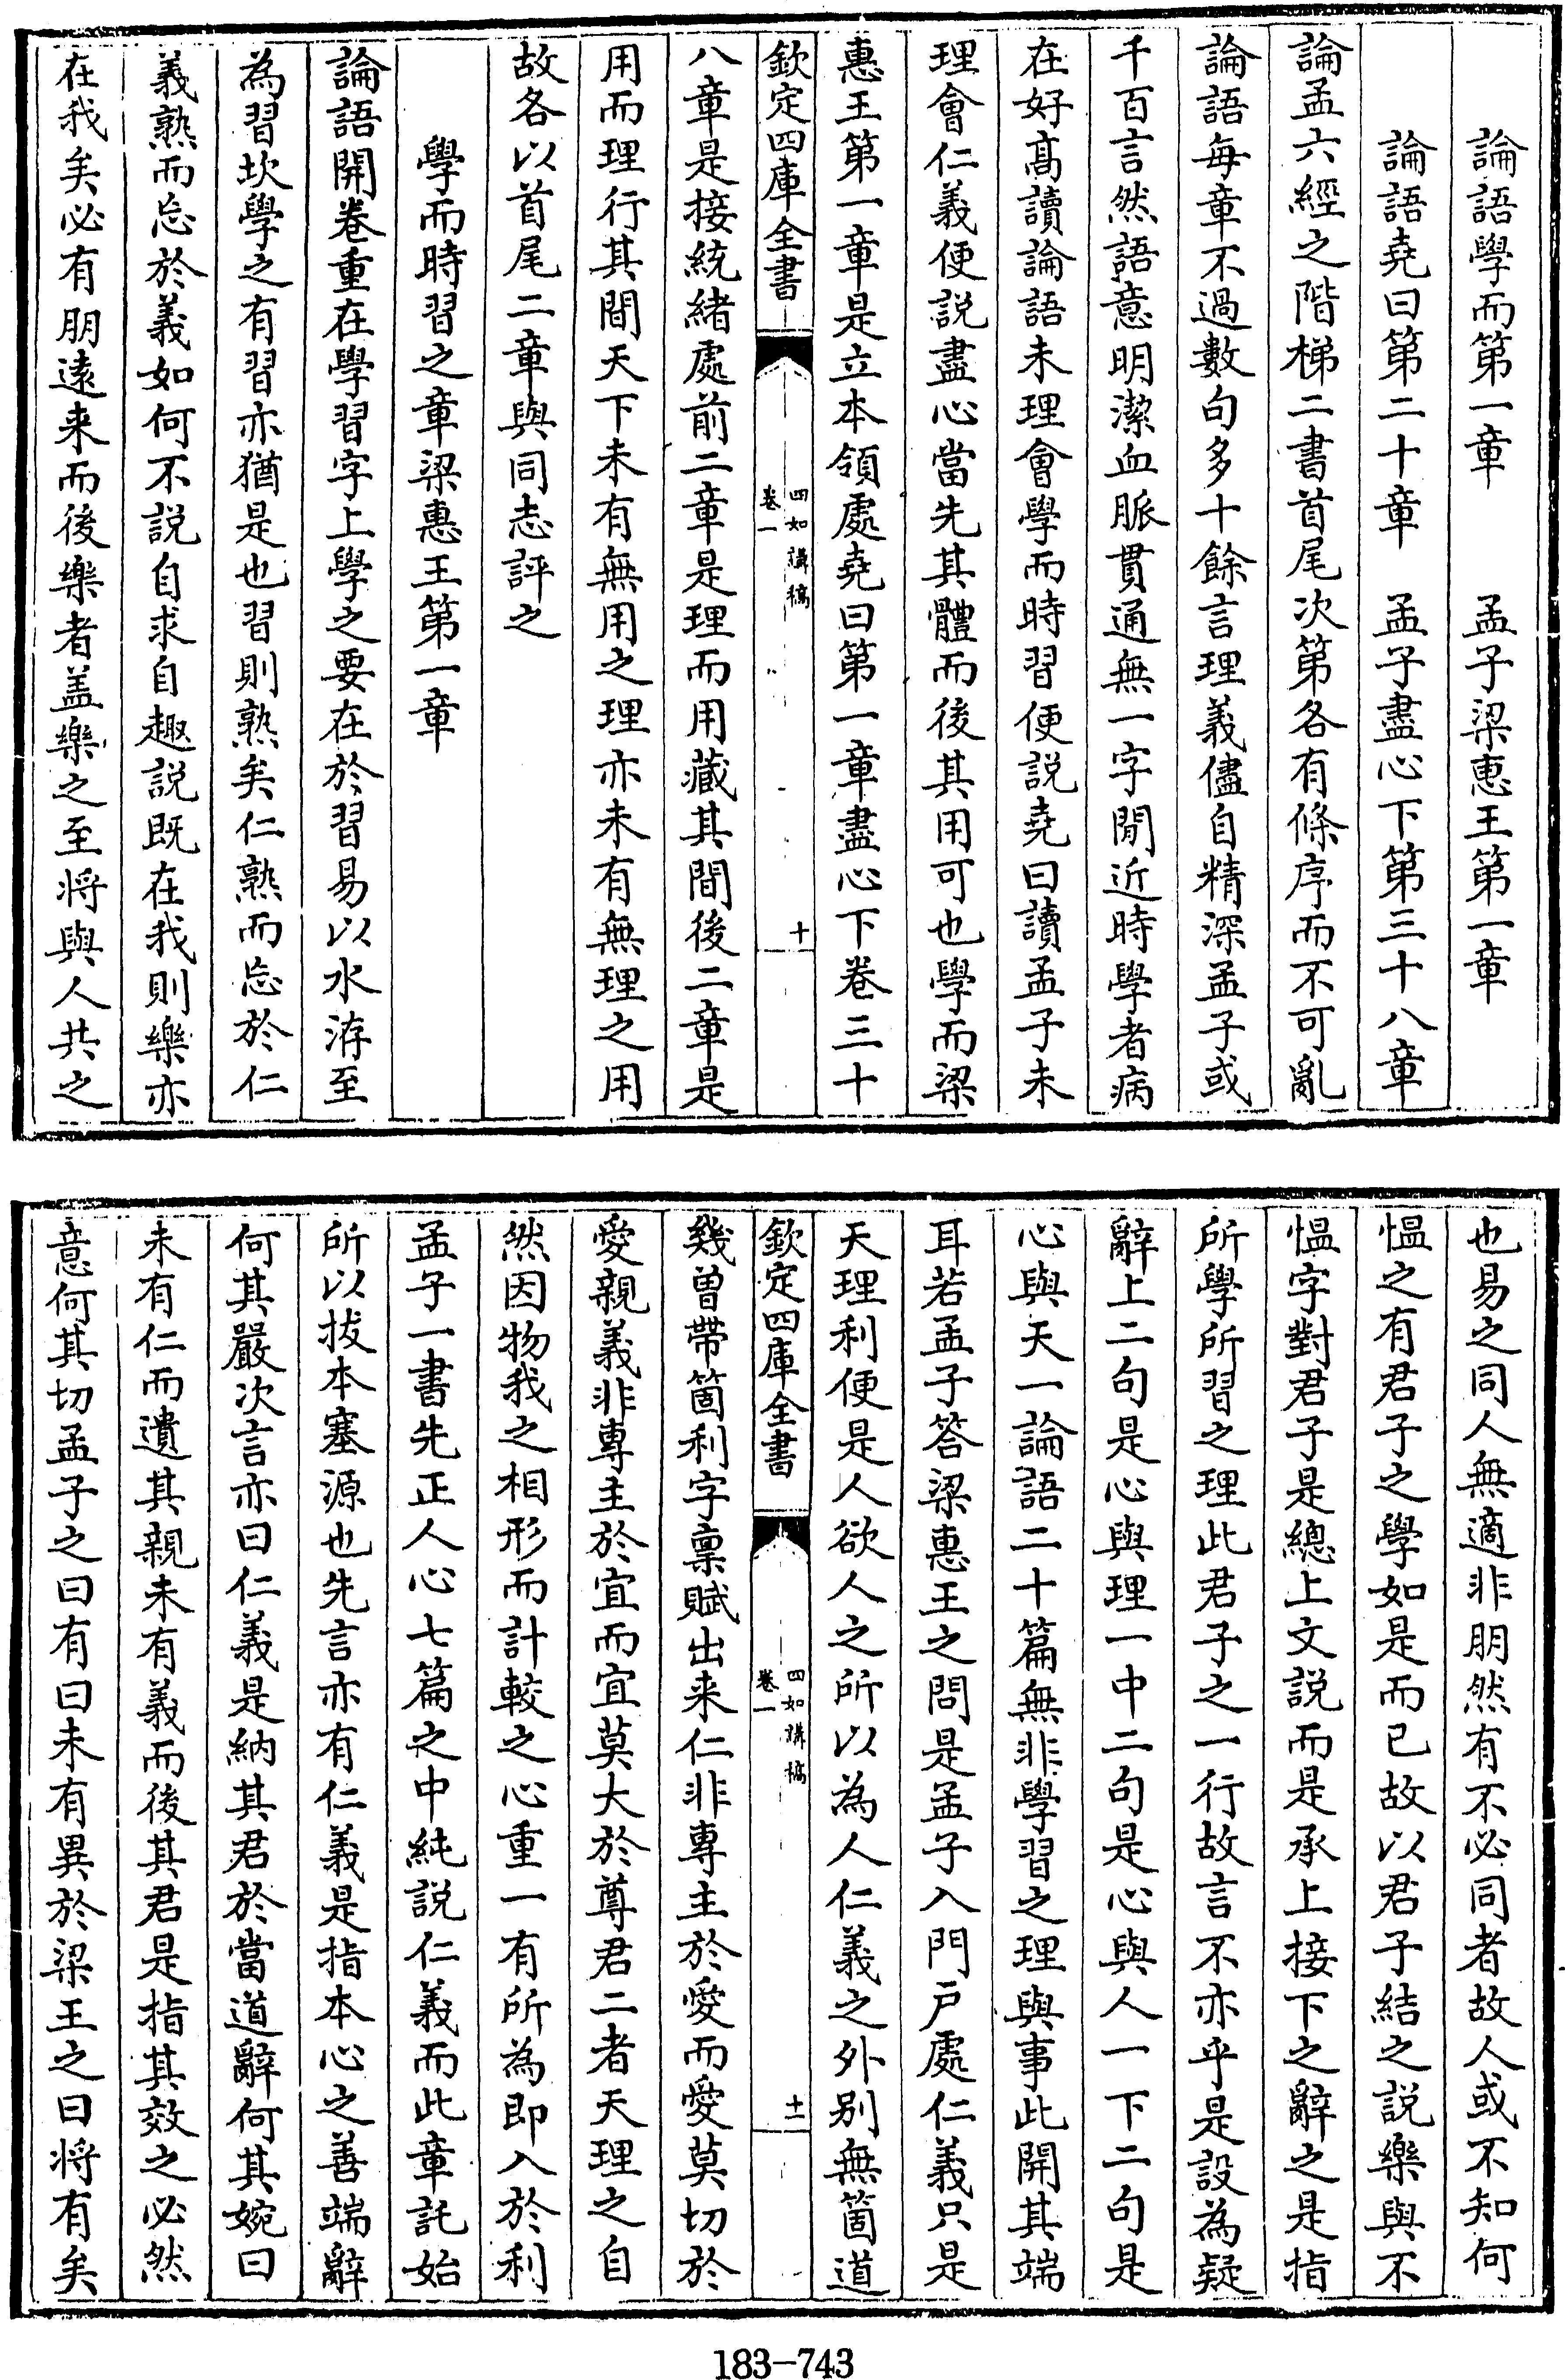 論語學而第一章　孟子梁惠王第一章
論語堯曰第二十章　孟子盡心下第三十八章
論孟六經之階梯二書首尾次第各有條序而不可亂
論語每章不過數句多十餘言理義儘自精深孟子或
千百言然語意明潔血脈貫通無一字閒近時學者病
在好高讀論語未理會學而時習便説堯曰讀孟子未
理會仁義便説盡心當先其體而後其用可也學而梁
惠王第一章是立本領處堯曰第一章盡心下卷三十
欽定四庫全書
四如講稿
卷一
十
八章是接統緒處前二章是理而用藏其間後二章是
用而理行其間天下未有無用之理亦未有無理之用
故各以首尾二章與同志評之
學而時習之章梁惠王第一章
論語開卷重在學習字上學之要在於習易以水洊至
為習坎學之有習亦猶是也習則熟矣仁熟而忘於仁
義熟而忘於義如何不説自求自趣説既在我則樂亦
在我矣必有朋遠来而後樂者盖樂之至将與人共之
也易之同人無適非朋然有不必同者故人或不知何
慍之有君子之學如是而已故以君子結之説樂與不
慍字對君子是總上文説而是承上接下之辭之是指
所學所習之理此君子之一行故言不亦乎是設為疑
辭上二句是心與理一中二句是心與人一下二句是
心與天一論語二十篇無非學習之理與事此開其端
耳若孟子答梁惠王之問是孟子入門戶處仁義只是
天理利便是人欲人之所以為人仁義之外別無箇道
欽定四庫全書
四如講稿
卷一
十一
幾曽帶箇利字稟賦出来仁非專主於愛而愛莫切於
愛親義非專主於宜而宜莫大於尊君二者天理之自
然因物我之相形而計較之心重一有所為即入於利
孟子一書先正人心七篇之中純説仁義而此章託始
所以拔本塞源也先言亦有仁義是指本心之善端辭
何其嚴次言亦曰仁義是納其君於當道辭何其婉曰
未有仁而遺其親未有義而後其君是指其效之必然
意何其切孟子之曰有曰未有異於梁王之曰将有矣
183-743